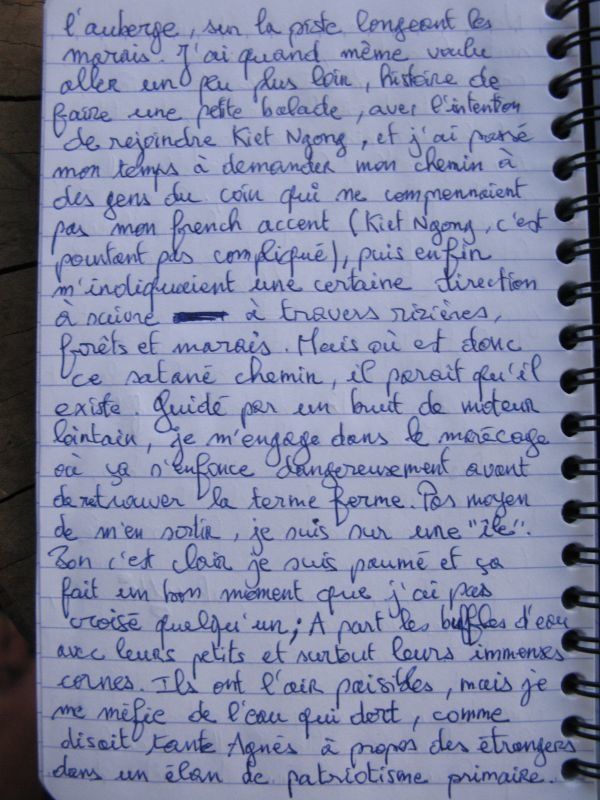 l'auberge, sur la piste longeant les
marais. J'ai quand même voulu
aller un peu plus loin, histoire de
faire une petite balade, avec l'intention
de rejoindre Kiet Ngong, et j'ai passé
mon temps à demander mon chemin à
des gens du coin qui ne comprennaient
pas mon french accent (Kiet Ngong, c'est
pourtant pas compliqué), puis enfin
m'indiquaient une certaine direction
à suivre à travers rizières,
forêts et marais. Mais où est donc
ce satané chemin, il parait qu'il
existe. Guidé par un bruit de moteur
lointain, je m'engage dans le marécage
où ça s'enfonce dangereusement avant
de retrouver la terme ferme. Pas moyen
de m'en sortir, je suis sur une "île".
Bon c'est clair je suis paumé et ça
fait un bon moment que j'ai pas
croisé quelqu'un; A part les buffles d'eau
avec leurs petits et surtout leurs immenses
cornes. Ils ont l'air paisibles, mais je
me méfie de l'eau qui dort, comme
disait tante Agnès à propos des étrangers
dans un élan de patriotisme primaire.